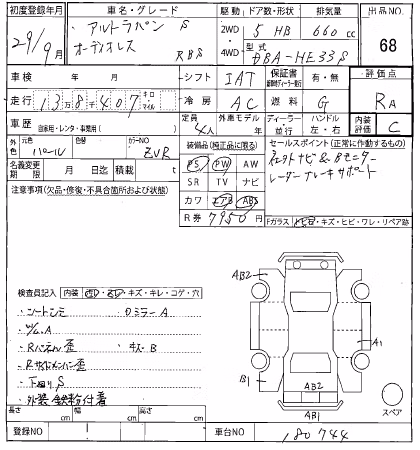 初度登録年月 車名・グレード 駆動 ドア数・形状 排気量 出品NO.
29/9月 アルトラパン S 2WD 5 HB 660 cc 68
オーディオレス RBS 4WD 型式 DBA-HE33S
車検 年 月 シフト IAT 保証書 有・無 評価点
走行 13万8千407 キロ マイル 冷房 AC 燃料 G RA
車歴 自家用・レンタ・事業用( ) 定員 4人 外車モデル年 ディーラー 並行 ハンドル 左・右 内装評価 C
外色 元色 パール 色替 カラーNO ZVR 装備品(純正品に限る) セールスポイント(正常に作動するもの)
名義変更期限 月 日迄 積載 t PS PW AW
レーダーブレーキサポート
注意事項(欠品・修復・不具合箇所および状態) SR TV ナビ
カワ エアB ABS
R券 7950円 Fガラス トビ石・キズ・ヒビ・ワレ・リペア跡
検査員記入 内装 キズ・キレ・コゲ・穴
シートシミ ロミラーA
Rパネル歪 キズB
Rサイドメンバー歪
下回りS
外装鉄粉付着
AB2
A1
B1
AB2
AB1
スペア
長さ cm 幅 cm 高さ cm
登録NO 車台NO 180744